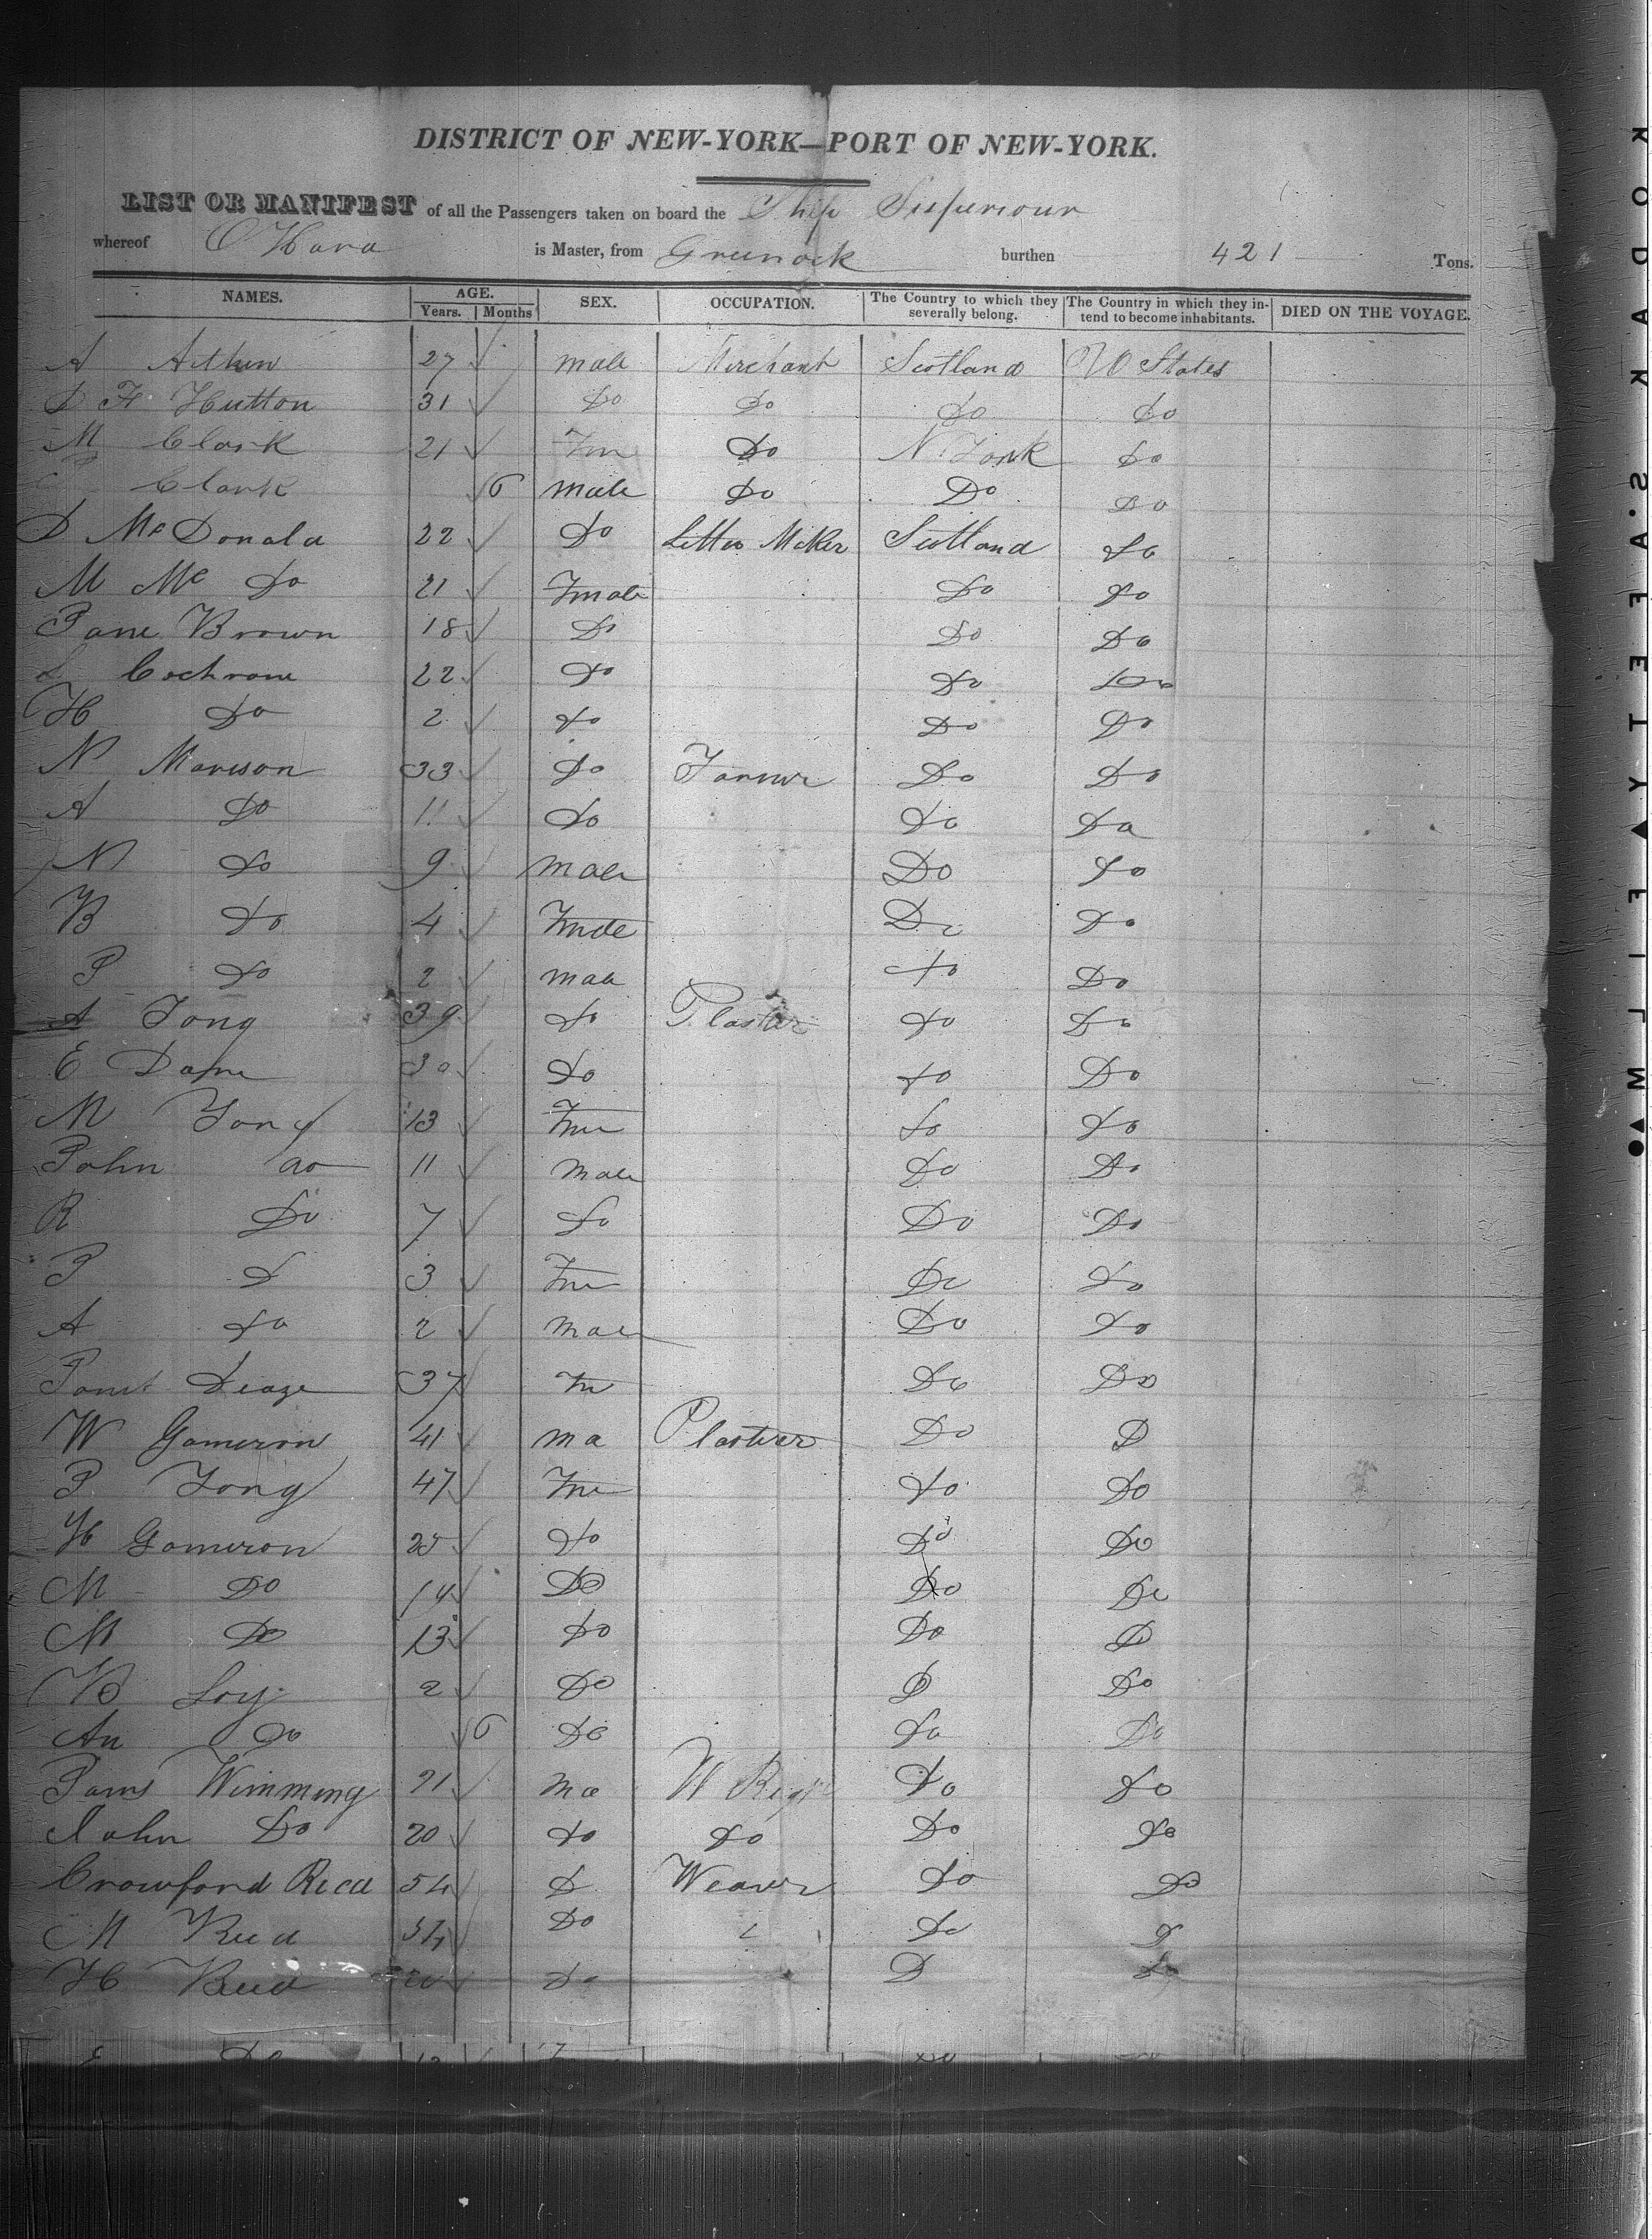 DISTRICT OF NEW-YORK—PORT OF NEW-YORK.
LIST OR MANIFEST of all the Passengers taken on board the Ship Superiour
whereof O Hara is Master, from Greenock burthen 421 Tons.
NAMES. AGE. SEX. OCCUPATION. The Country to which they severally belong. The Country in which they intend to become inhabitants. DIED ON THE VOYAGE.
Years. Months
A Aitken 27 male Merchant Scotland U States
D F Hutton 31 Do Do Do Do
M Clark 21 Fm Do N York Do
Clark 6 male Do Do Do
D McDonald 22 Do Scotland Do
M Mc Do 21 Fmale Do Do
Jane Brown 18 Do Do Do
Cochrane 22 Do Do Do
H Do 2 Do Do Do
N 33 Do Farmer Do Do
A Do 11 Do Do Do
N Do 9 male Do Do
B Do 4 Fmale Do Do
J Do 2 male Do Do
A Yong 39 Do Plaster Do Do
E 30 Do Do Do
M Yong 13 Fm Do Do
John do 11 male Do Do
R Do 7 Do Do Do
J D 3 Fm Do Do
A Do 2 male Do Do
37 Fm Do Do
W Gameron 41 ma Plasterer Do D
J Yong 47 Fm Do Do
H Gameron 25 Do Do Do
M Do 14 Do Do Do
M Do 13 Do Do D
B 2 Do D Do
An Do 6 Do Do Do
Jams Wimming 21 ma W Do Do
John Do 20 Do Do Do Do
Crawford Reed 54 D Weaver Do Do
M Reed 54 Do Do D
H Reed 20 Do D Do
KODAK S.AFETY FILM